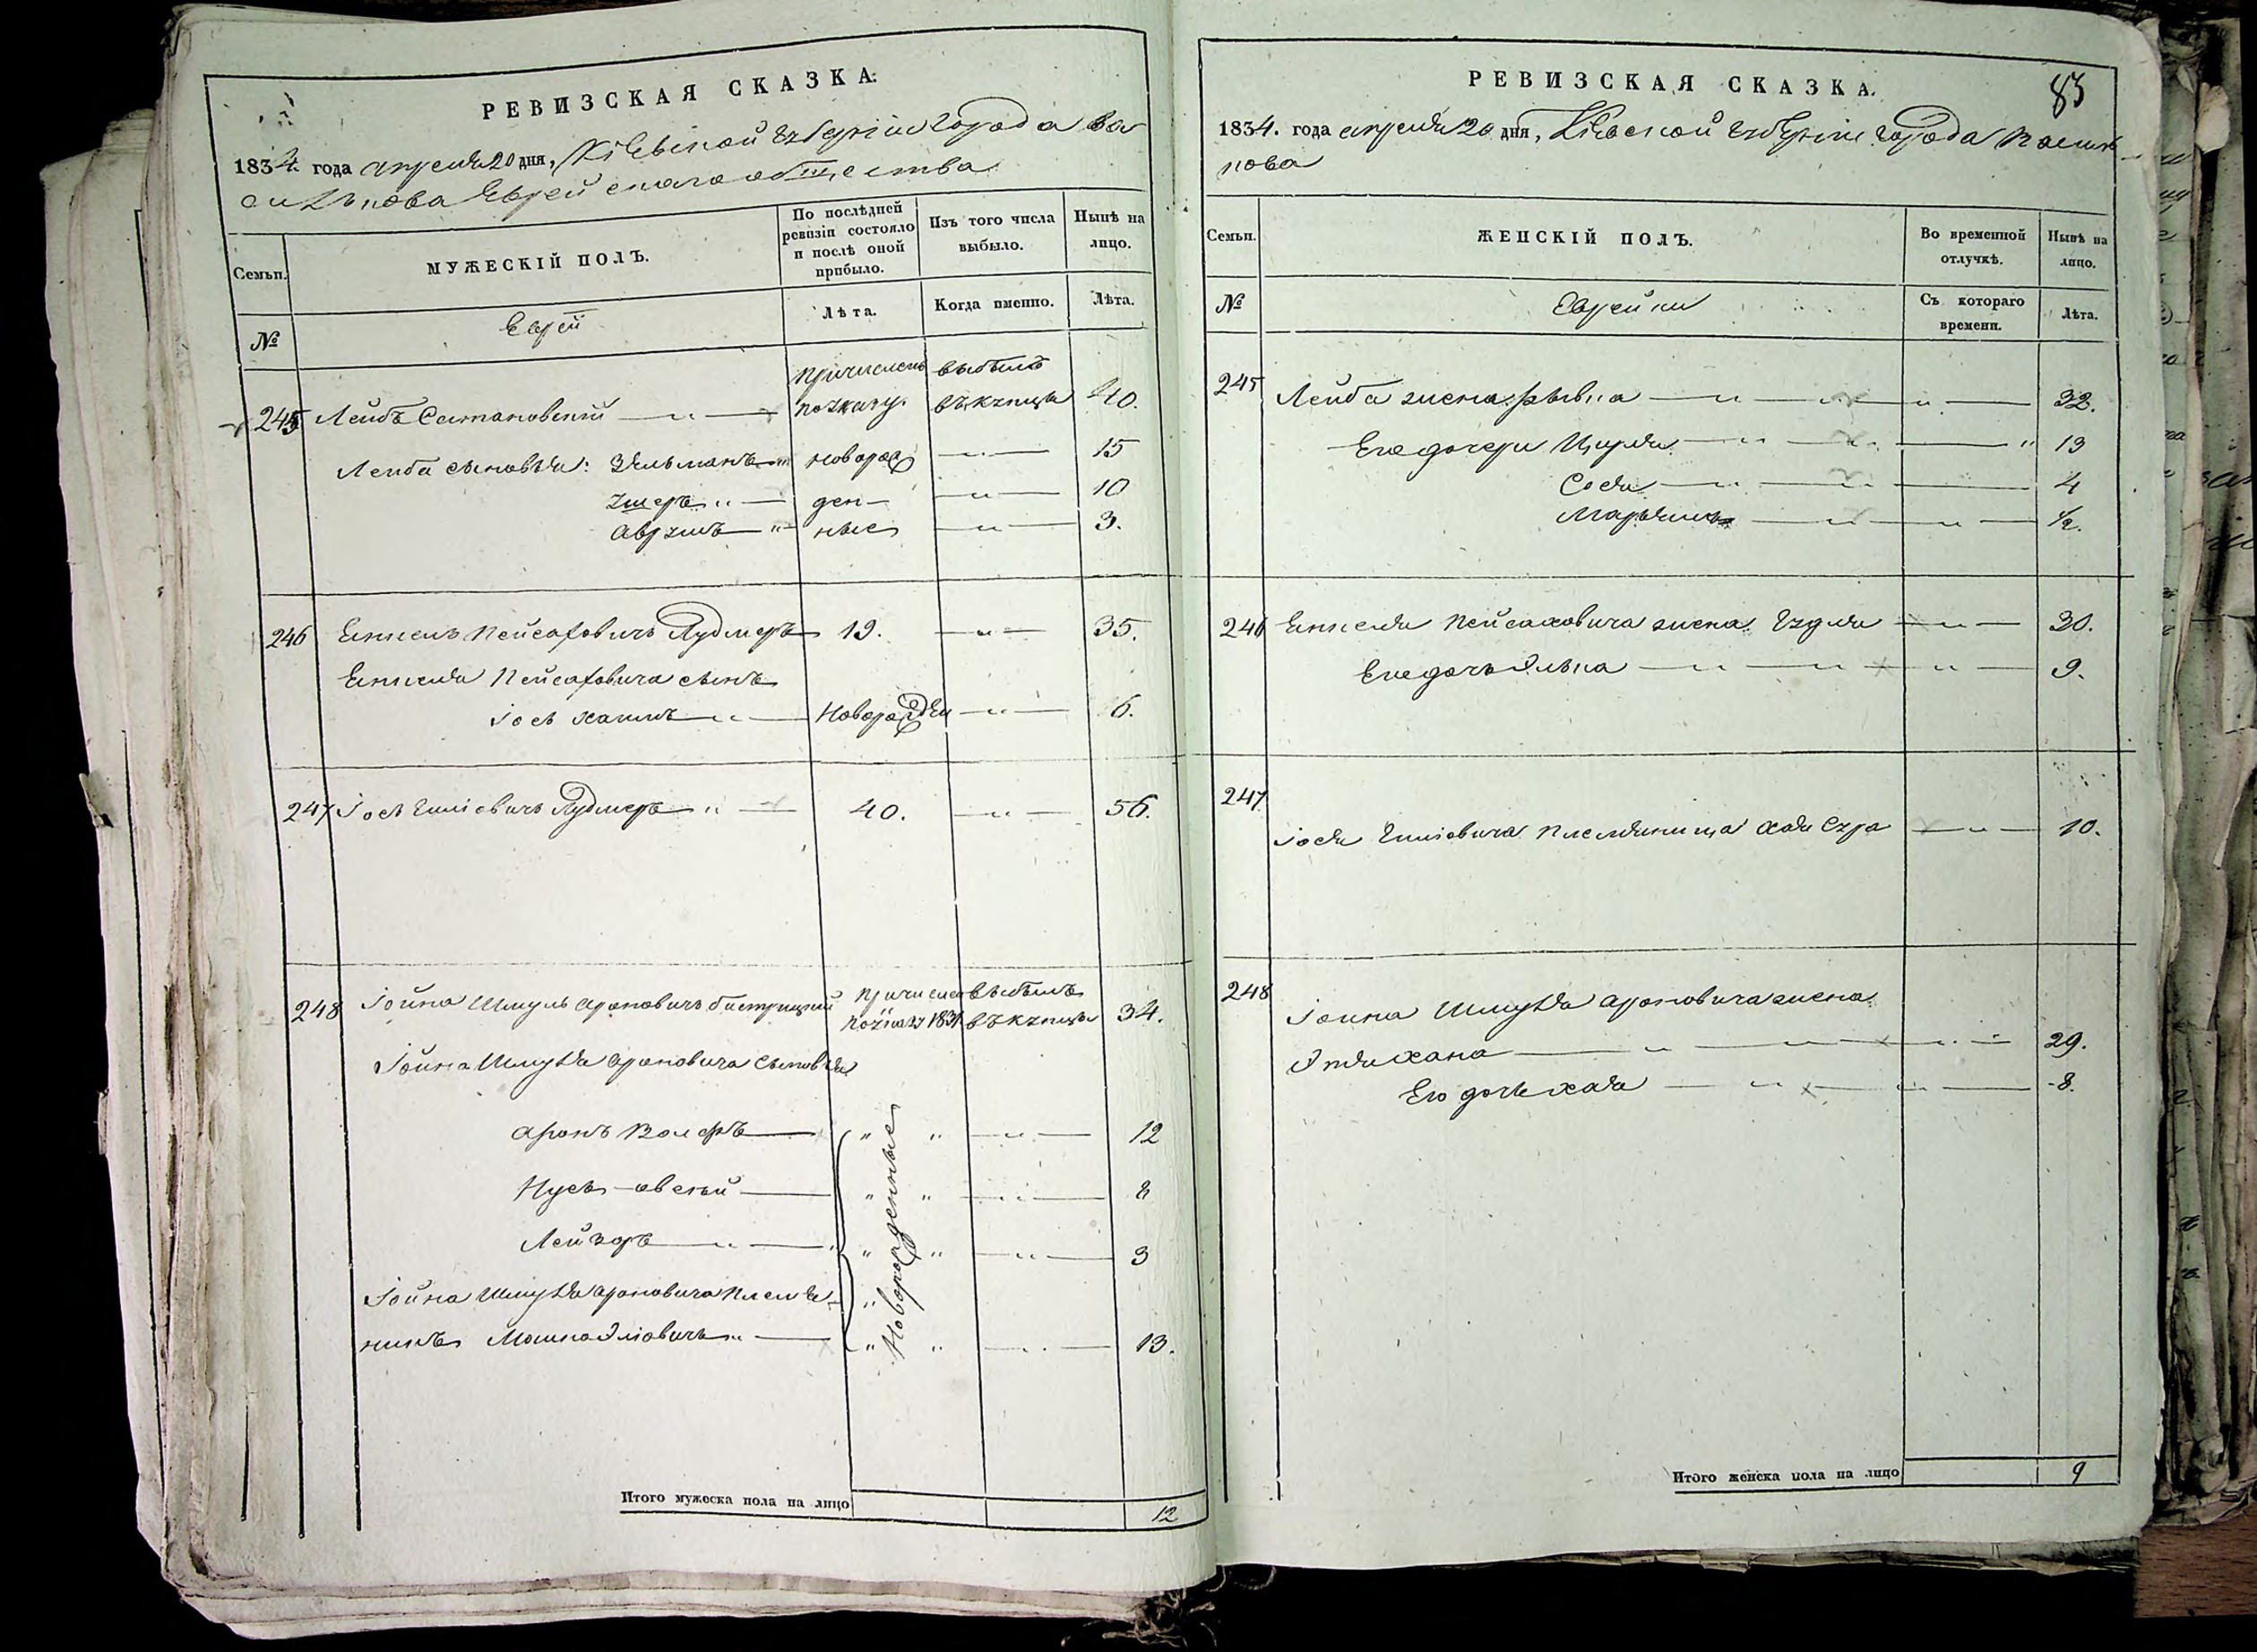 РЕВИЗСКАЯ СКАЗКА.
1834. года апреля 20 дня, Кіевской Губерніи Города Ва
силькова Еврейскаго общества
Семьи.
МУЖЕСКІЙ ПОЛЪ.
По послѣдней ревизіи состояло и послѣ оной прибыло.
Изъ того числа выбыло.
Нынѣ на лицо.
№
Еврей
Лѣта.
Когда именно.
Лѣта.
245 Лейбъ причисленъ по указу. выбылъ въ купцы 40.
Лейба сыновья: Зельманъ новорож — 15
ден — 10
Аврумъ ные — 3.
246 Пейсаховичъ 19. — 35.
Пейсаховича сынъ
Іось Хаимъ Новорожден — 6.
247 Іось 40. — 56.
248 Іойна Шмуль Ароновичъ причислен по указу 1831 выбылъ въ купцы 34.
Іойна Шмуля Ароновича сыновья
Аронъ Волфъ — 12
Нусь — 8
Лейзоръ — 3
Іойна Шмуля Ароновича племя-
никъ Мошко — 13.
Новорожденные
Итого мужеска пола на лицо 12
РЕВИЗСКАЯ СКАЗКА.
83
1834. года апреля 20 дня, Кіевской Губерніи города Василь-
кова
Семьи.
ЖЕНСКІЙ ПОЛЪ.
Во временной отлучкѣ.
Нынѣ на лицо.
№
Еврейки
Съ котораго времени.
Лѣта.
245 Лейба жена Рывка — 32.
Его дочери Цирля — 13
Сося — 4
Марьямъ — 1/2.
246 Пейсаховича жена — 30.
Его дочь — 9.
247
Іося племяница Хая Сура — 10.
248
Іоина Шмуля Ароновича жена
Этля Хана — 29.
Его дочь Хая — 8.
Итого женска пола на лицо 9